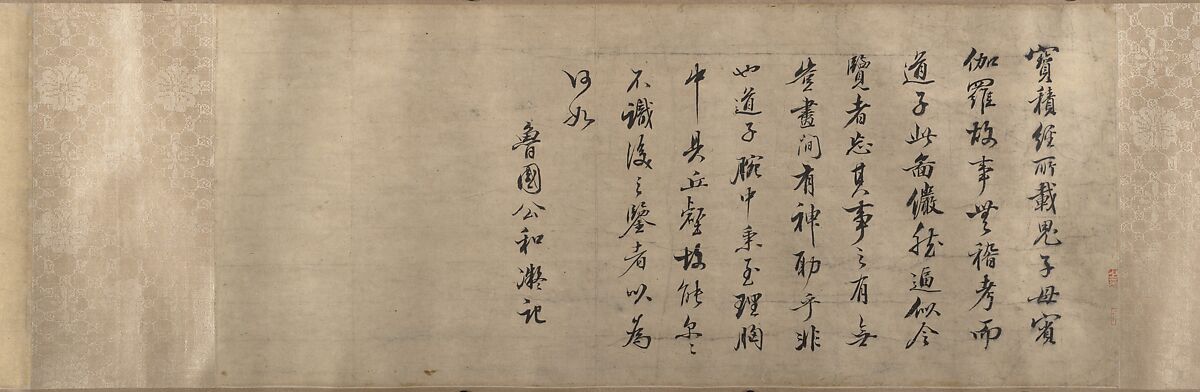 寶積經所載鬼子母賓
伽羅故事無稽考而
道子此畫儼然逼似令
覽者忘其事之有無
豈畫間有神助乎非
也道子腕中秉至理胸
中具丘壑故能尔々
不識後之鑒者以為
何如
魯國公和凝記